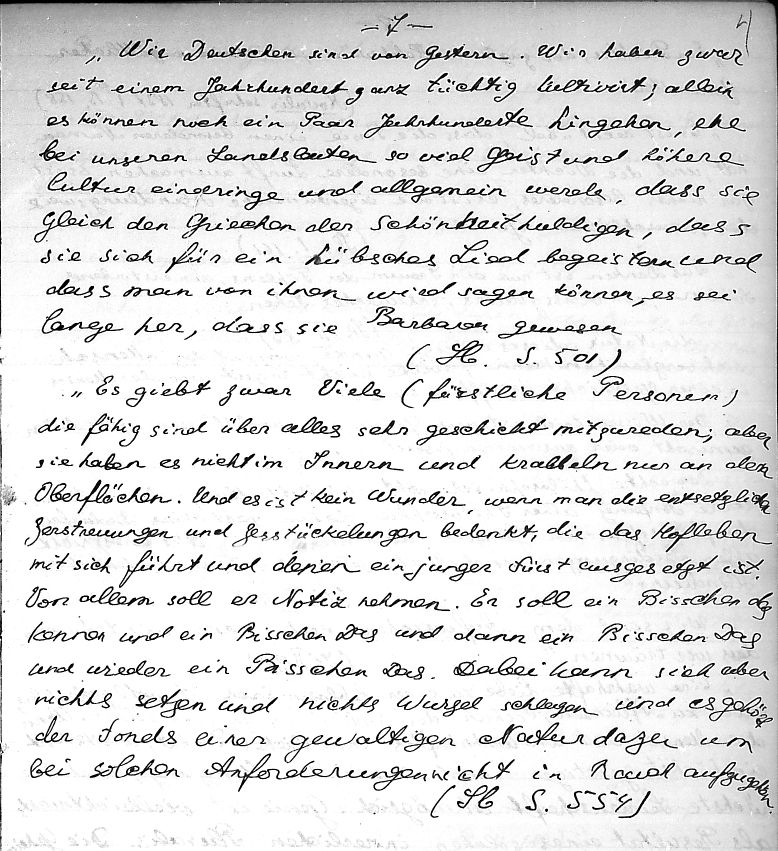 -7-
4
„Wir Deutschen sind von Gestern. Wir haben zwar
seit einem Jahrhundert ganz tüchtig kultivirt; allein
es können noch ein Paar Jahrhunderte hingehen, ehe
bei unseren Landsleuten so viel Geist und höhere
Cultur eindringe und allgemein werde, dass sie
gleich den Griechen der Schönheit huldigen, dass
sie sich für ein hübsches Lied begeistern und
dass man von ihnen wird sagen können, es sei
lange her, dass sie Barbaren gewesen
( S. 501)
„Es giebt zwar Viele (fürstliche Personen)
die fähig sind über alles sehr geschickt mitzureden; aber
sie haben es nicht im Innern und krabbeln nur an den
Oberflächen. Und es ist kein Wunder, wenn man die entsetzlichen
Zerstreuungen und Zerstückelungen bedenkt, die das Hofleben
mit sich führt und denen ein junger Fürst ausgesetzt ist.
Von allem soll er Notiz nehmen. Er soll ein Bisschen das
kennen und ein Bisschen Das und dann ein Bisschen Das
und wieder ein Bisschen Das. Dabei kann sich aber
nichts setzen und nichts Wurzel schlagen und es gehört
der Fonds einer gewaltigen Natur dazu um
bei solchen Anforderungen nicht in Rauch aufzugehen.
( S. 554)